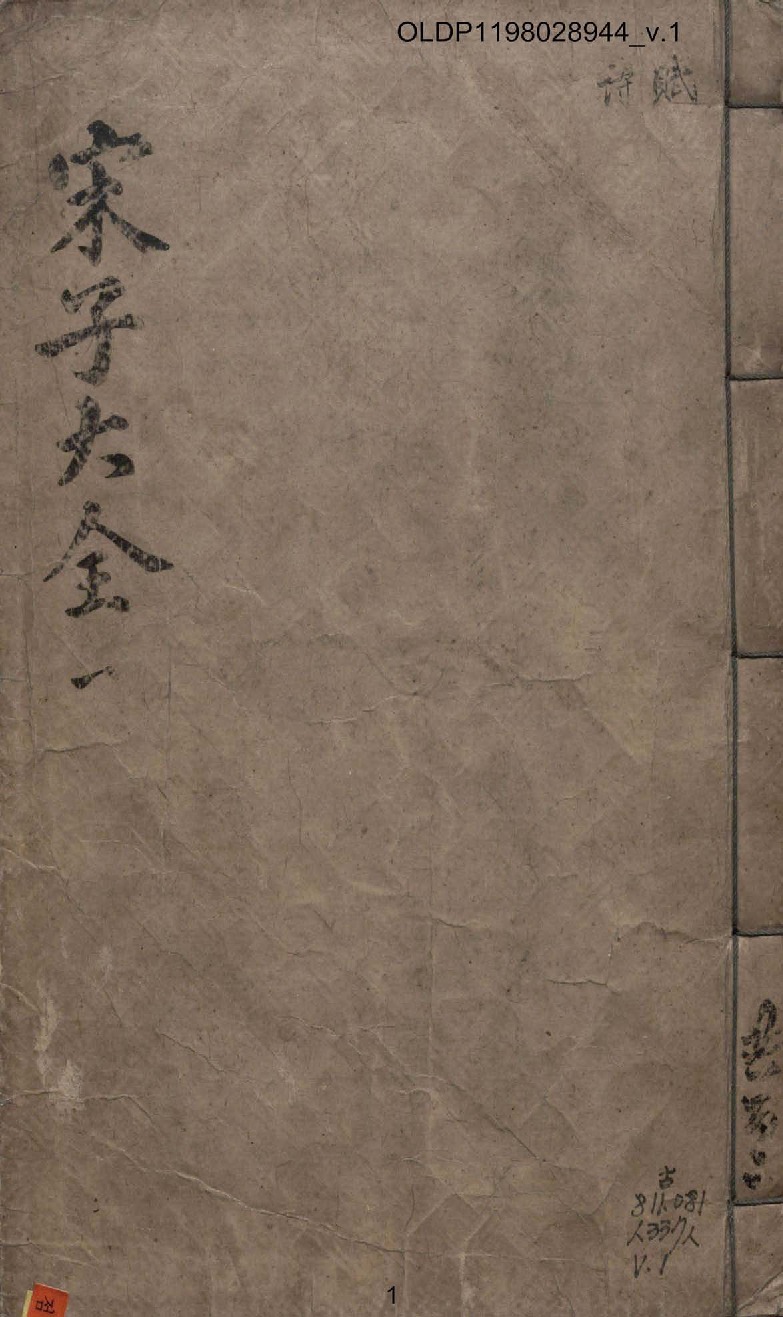 OLDP1198028944_v.1
詩 賦
宋子大全 一
共百二
古
811.081
ㅅ337ㅅ
V.1
1